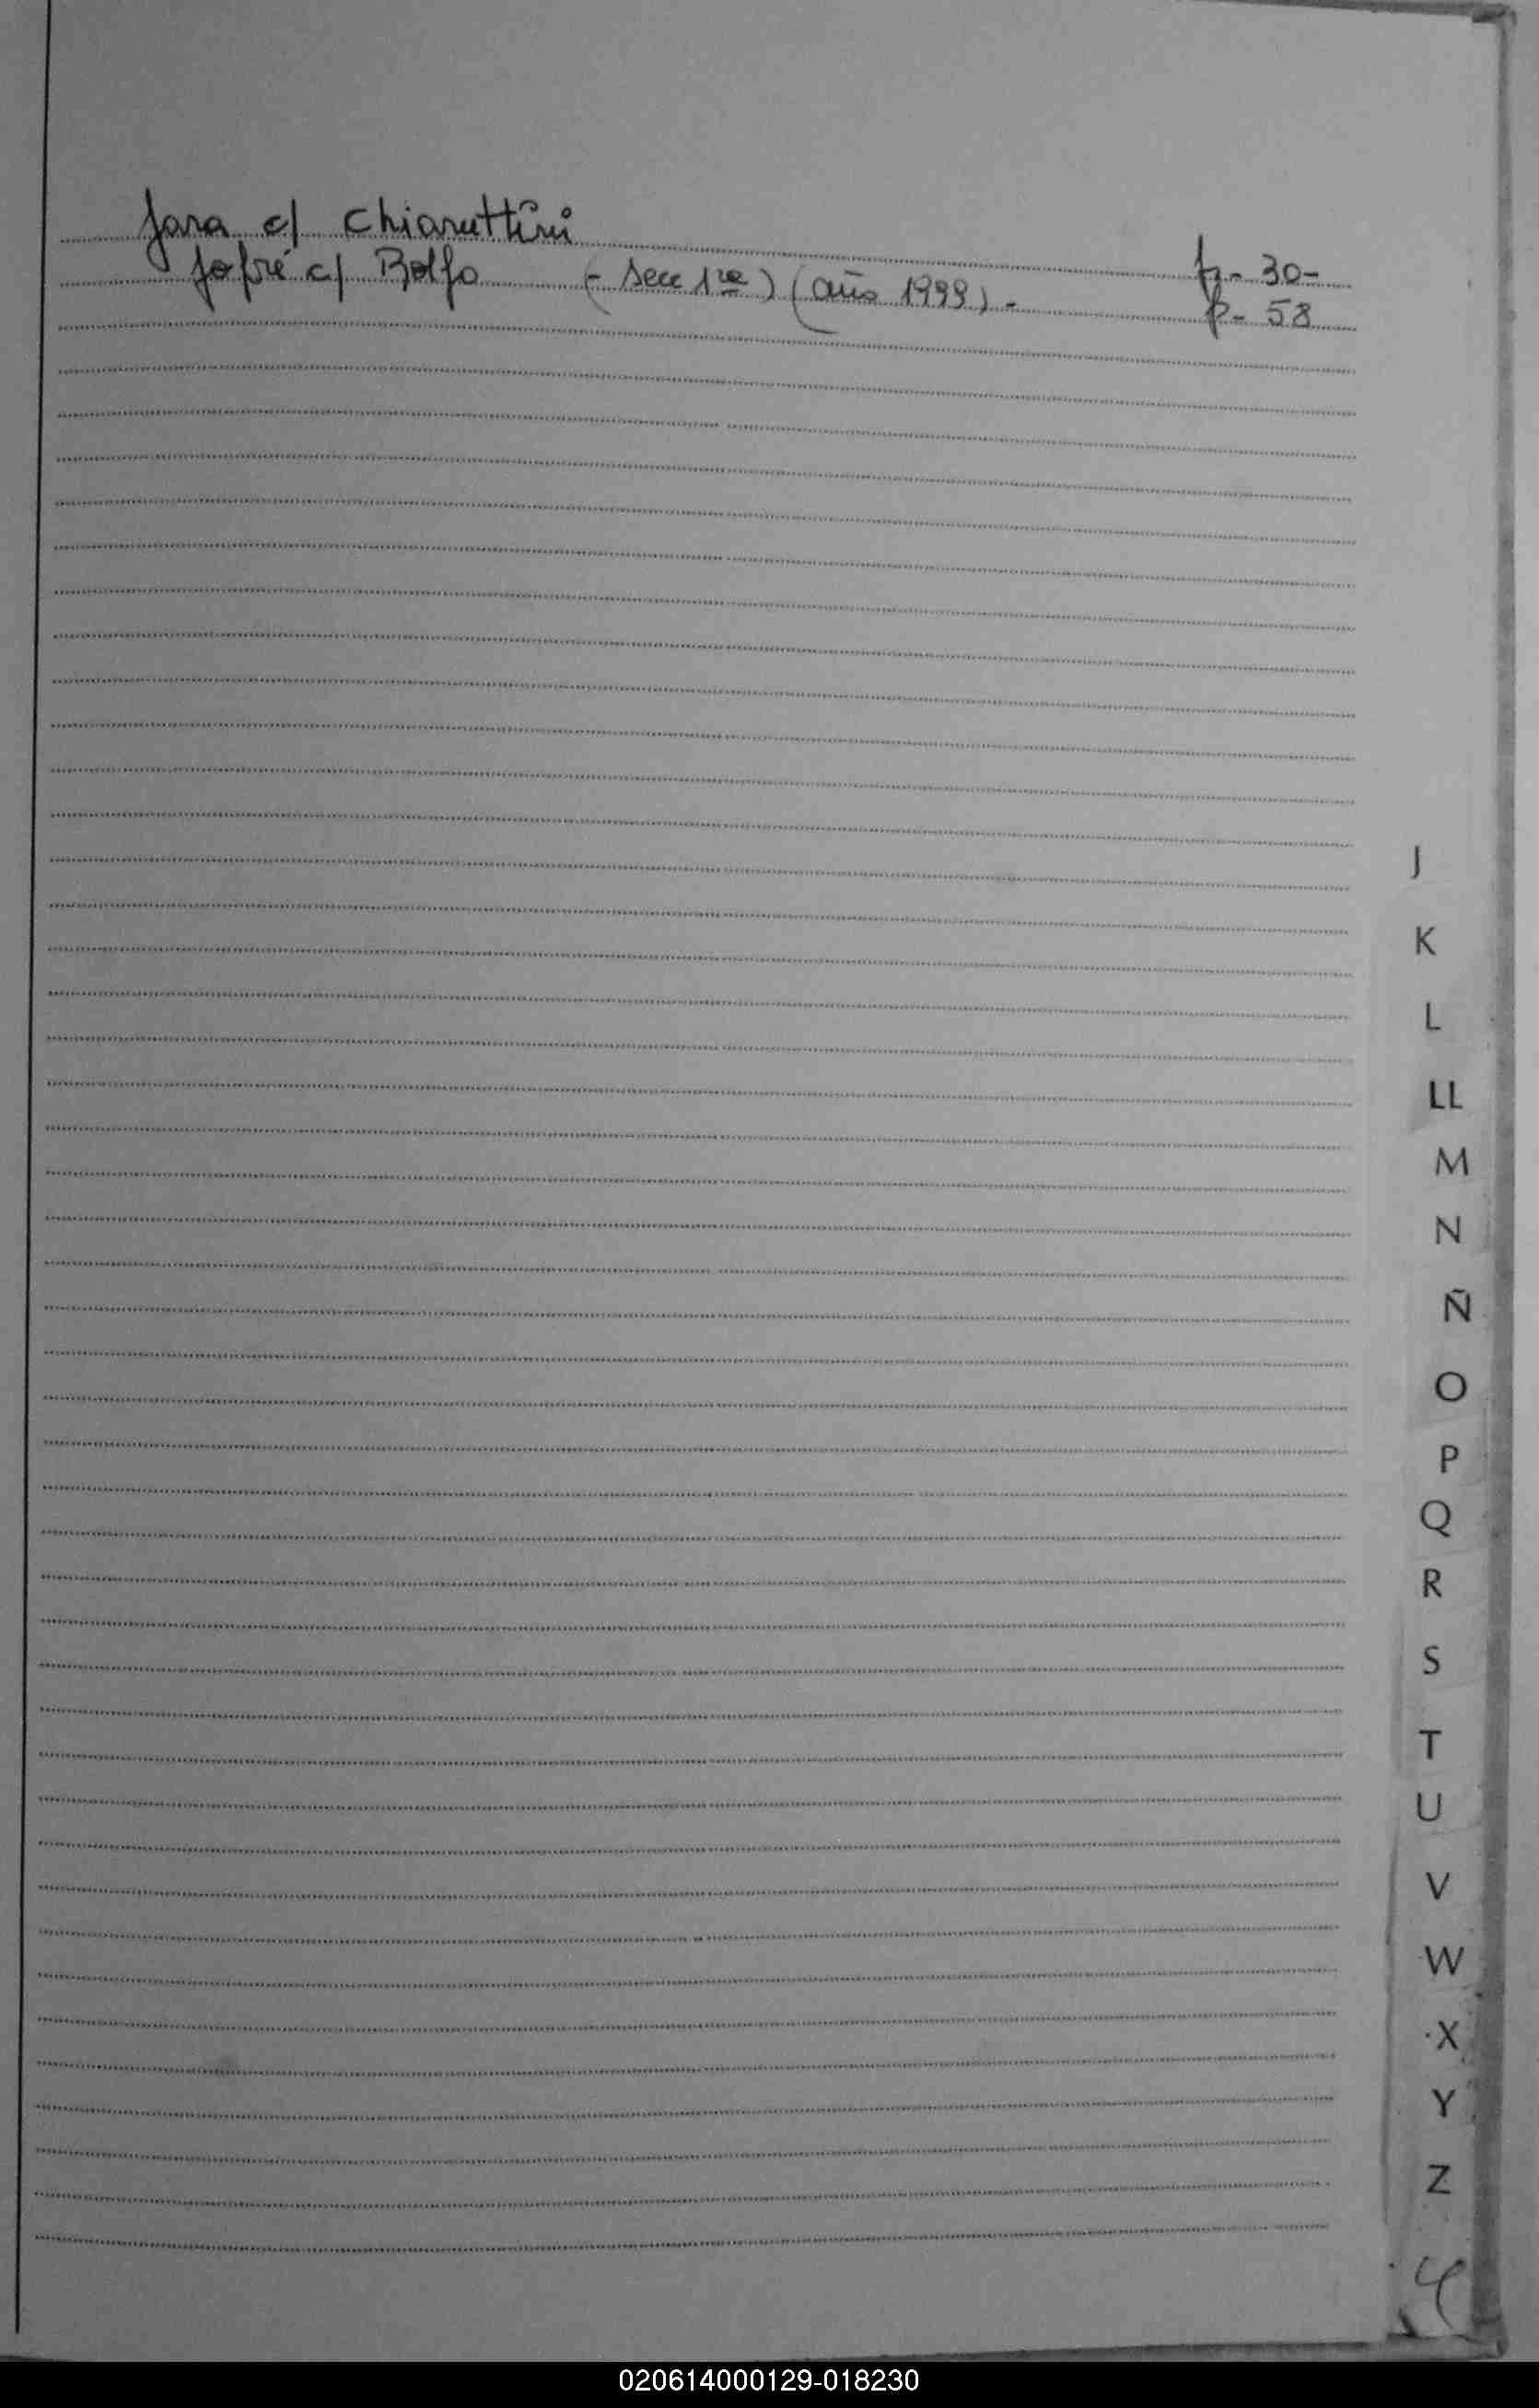 Jara c/ Chiaruttini p- 30-
Jofré c/ Bolfo (- secc 1ra) (año 1999) - p- 58
J
K
L
LL
M
N
Ñ
O
P
Q
R
S
T
U
V
W
X
Y
Z
020614000129-018230